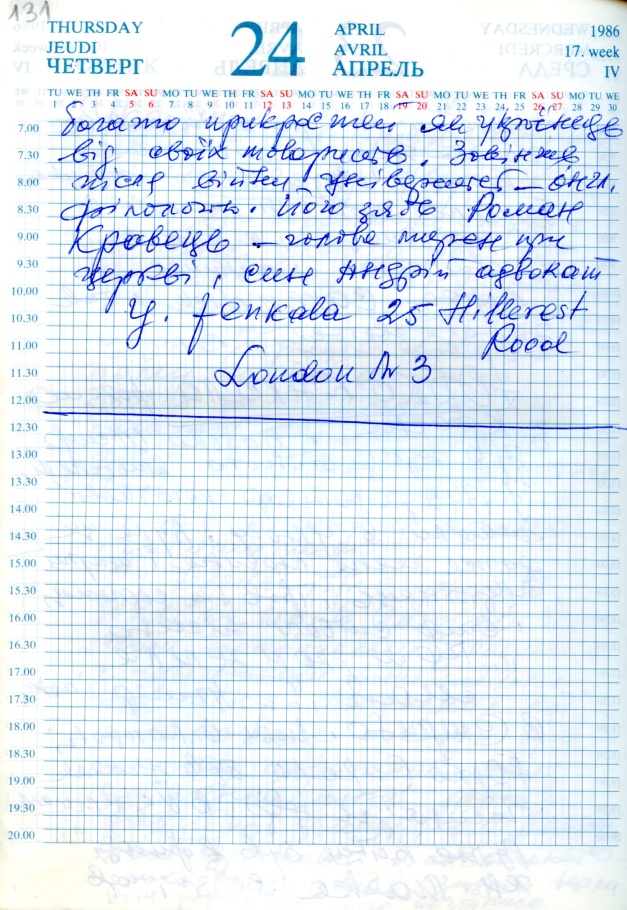 131
THURSDAY
JEUDI
ЧЕТВЕРГ
24
APRIL
AVRIL
АПРЕЛЬ
1986
17. week
IV
TU WE TH FR SA SU MO TU WE TH FR SA SU MO TU WE TH FR SA SU MO TU WE TH FR SA SU MO TU WE
1 2 3 4 5 6 7 8 9 10 11 12 13 14 15 16 17 18 19 20 21 22 23 24 25 26 27 28 29 30
7.00
7.30
8.00
8.30
9.00
9.30
10.00
10.30
11.00
11.30
12.00
12.30
13.00
13.30
14.00
14.30
15.00
15.30
16.00
16.30
17.00
17.30
18.00
18.30
19.00
19.30
20.00
богато прикростей як українець
від своїх товаришів. Закінчив
після війни університет – англ.
філологію. Його зять Роман
Кравець – голова при
церкві, син Андрій адвокат
Y. Jenkala 25 Hillcrest
Road
London Nr 3